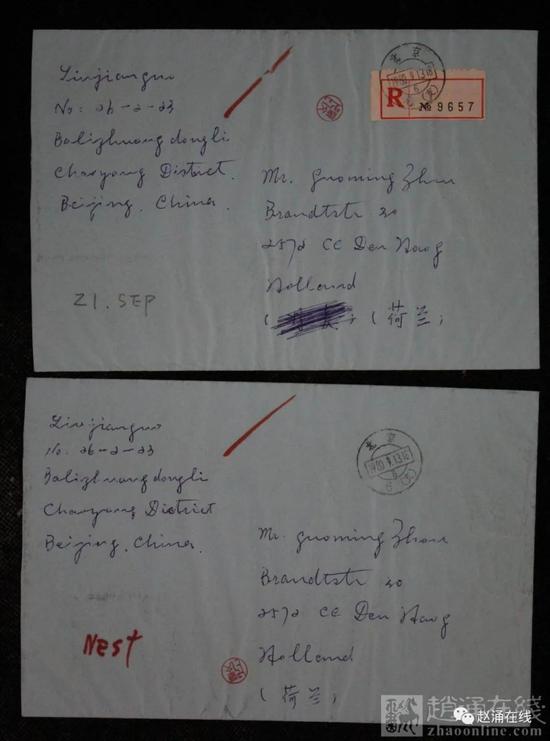 Liujianguo
No: 26-2-23
Balizhuang dongli
Chaoyang District.
Beijing. China.
21. SEP
北京
R № 9657
Mr. Guoming Zhou
Brandtstr 20
2572 CE Den Haag
Holland
(荷兰)
Liujianguo
No. 26-2-23
Balizhuang dongli
Chaoyang District
Beijing. China.
Nest
北京
Mr. Guoming Zhou
Brandtstr 20
2572 CE Den Haag
Holland
(荷兰)
趙涌在线
zhaoonline.com
赵涌在线